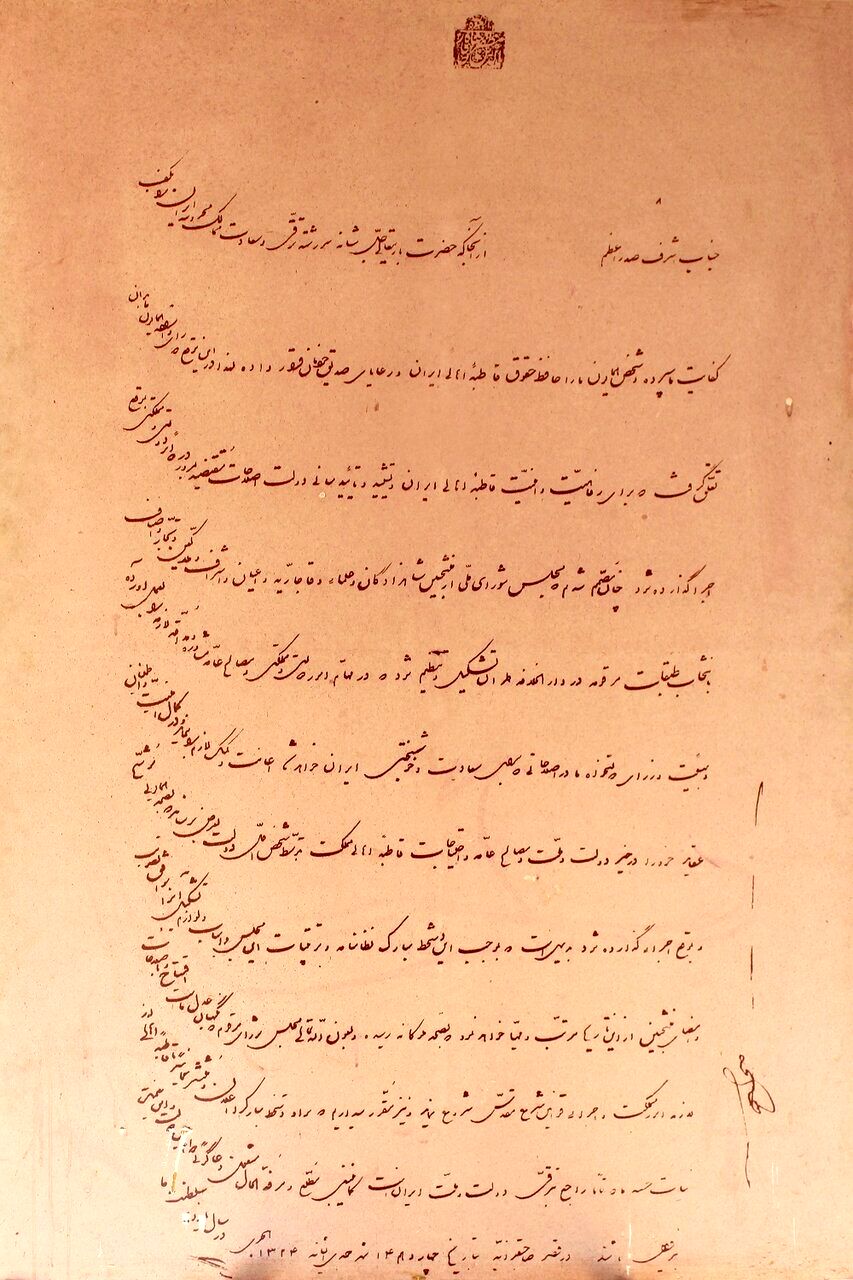 جناب اشرف صدراعظم از آنجا که حضرت باریتعالی جل شانه سررشته ترقی و سعادت ممالک محروسه ایران را بکف
کفایت ما سپرده و شخص همایون ما را حافظ حقوق قاطبهٔ اهالی ایران و رعایای صدیق خودمان قرار داده لهذا در این موقع که رای و اراده همایون ما بدان
تعلق گرفت که برای رفاهیت و امنیت قاطبه اهالی ایران و تشیید و تأیید مبانی دولت اصلاحات مقتضیه بمرور در دوائر دولتی و مملکتی بموقع
اجرا گذارده شود چنان مصمم شدیم که مجلس شورای ملی از منتخبین شاهزادگان و علماء و قاجاریه و اعیان و اشراف و ملاکین و تجار و اصناف
بانتخاب طبقات مرقومه در دارالخلافه طهران تشکیل و تنظیم شود که در مهام امور دولتی و مملکتی و مصالح عامه مشاوره و مداقه لازمه را بعمل آورده
و بهیئت وزرای دولتخواه ما در اصلاحاتی که برای سعادت و خوشبختی ایران خواهد شد اعانت و کمک لازم را بنماید و در کمال امنیت و اطمینان
عقاید خود را در خیر دولت و ملت و مصالح عامه و احتیاجات قاطبهٔ اهالی مملکت بتوسط شخص اول دولت بعرض برساند که بصحه همایونی موشح
و بموقع اجرا گذارده شود بدیهی است که بموجب این دستخط مبارک نظامنامه و ترتیبات این مجلس و اسباب و لوازم تشکیل آنرا موافق تصویب
و امضای منتخبین از این تاریخ مرتب و مهیا خواهد نمود که بصحه ملوکانه رسیده و بعون الله تعالی مجلس شورای مرقوم که نگهبان عدل ماست افتتاح و باصلاحات
لازمه امور مملکت و اجراء قوانین شرع مقدس شروع نماید و نیز مقرر میداریم که سواد دستخط مبارک را اعلان و منتشر نمائید تا قاطبهٔ اهالی از
نیات حسنه ما که تماماً راجع بترقی دولت و ملت ایران است کماینبغی مطلع و مرفه الحال مشغول دعاگوئی دوام این دولت و این نعمت
بی زوال باشند در قصر صاحبقرانیه بتاریخ چهاردهم ۱۴ شهر جمادی الثانیه ۱۳۲۴ هجری در سال یازدهم سلطنت ما